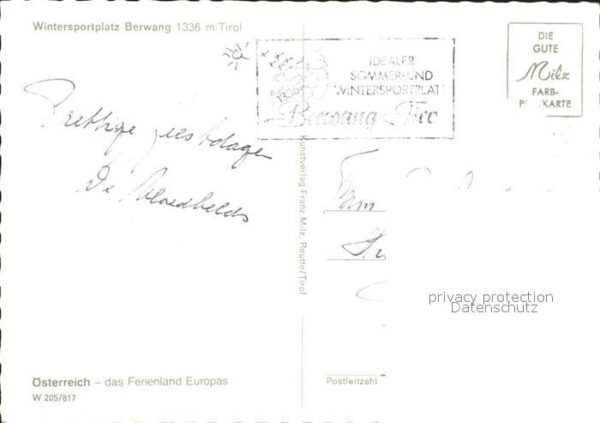 Wintersportplatz Berwang 1336 m/Tirol
IDEALER
SOMMER-UND
WINTERSPORTPLATZ
Berwang Tiro
DIE
GUTE
Milz
FARB-
POSTKARTE
Prettige feestdagen
De
Kunstverlag Franz Milz, Reutte/Tirol
Fam
privacy protection
Datenschutz
Österreich – das Ferienland Europas
W 205/817
Postleitzahl